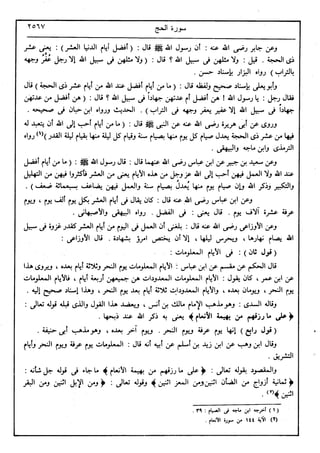 سورة الحج ٢٥٦٧
وعن جابر رضى الله عنه : أن رسول الله ﷺ قال : (أفضل أيام الدنيا العشر) : يعنى عشر
ذى الحجة . قيل : ولا مثلهن فى سبيل الله ؟ قال : (ولا مثلهن فى سبيل الله إلا رجل عفر وجهه
بالتراب) رواه البزار بإسناد حسن .
وأبو يعلى بإسناد صحيح ولفظه قال : (ما من أيام أفضل عند الله من أيام عشر ذى الحجة) قال
فقال رجل : يا رسول الله ! هن أفضل أم عدتهن جهاداً فى سبيل الله ؟ قال : (هن أفضل من عدتهن
جهاداً فى سبيل الله إلا عفير يعفر وجهه فى التراب) . الحديث ورواه ابن حبان فى صحيحه .
وروى عن أبى هريرة رضى الله عنه عن النبى ﷺ قال : (ما من أيام أحب إلى الله أن يتعبد له
فيها من عشر ذى الحجة يعدل صيام كل يوم منها بصيام سنة وقيام كل ليلة منها بقيام ليلة القدر)(١) رواه
الترمذى وابن ماجه والبيهقى .
وعن سعيد بن جبير عن ابن عباس رضى الله عنهما قال : قال رسول الله ﷺ : (ما من أيام أفضل
عند الله ولا العمل فيهن أحب إلى الله عز وجل من هذه الأيام يعنى من العشر فأكثروا فيهن من التهليل
والتكبير وذكر الله وإن صيام يوم منها يعدل بصيام سنة والعمل فيهن يضاعف بسبعمائة ضعف) .
وعن ابن عباس رضى الله عنه قال : كان يقال فى أيام العشر بكل يوم ألف يوم ، ويوم
عرفة عشرة آلاف يوم . قال يعنى : فى الفضل . رواه البيهقى والأصبهانى .
وعن الأوزاعى رضى الله عنه قال : بلغنى أن العمل فى اليوم من أيام العشر كقدر غزوة فى سبيل
الله يصام نهارها ، ويحرس ليلها ، إلا أن يختص امرؤ بشهادة . قال الأوزاعى :
(قول ثان) : فى الأيام المعلومات :
قال الحكم عن مقسم عن ابن عباس : الأيام المعلومات يوم النحر وثلاثة أيام بعده ، ويروى هذا
عن ابن عمر ، كان يقول : الأيام المعلومات المعدودات هن جميعهن أربعة أيام ، فالأيام المعلومات
يوم النحر ، ويومان بعده ، والأيام المعدودات ثلاثة أيام بعد يوم النحر ، وهذا إسناد صحيح إليه .
وقاله السدى : وهو مذهب الإمام مالك بن أنس ، ويعضد هذا القول والذى قبله قوله تعالى :
﴿على ما رزقهم من بهيمة الأنعام﴾ يعنى به ذكر الله عند ذبحها .
(قول رابع) إنها يوم عرفة ويوم النحر . ويوم آخر بعده ، وهو مذهب أبى حنيفة .
وقال ابن وهب عن ابن زيد بن أسلم عن أبيه أنه قال : المعلومات يوم عرفة ويوم النحر وأيام
التشريق .
والمقصود بقوله تعالى : ﴿على ما رزقهم من بهيمة الأنعام﴾ ما جاء فى قوله جل شأنه :
﴿ثمانية أزواج من الضأن اثنين ومن المعز اثنين﴾ وقوله تعالى : ﴿ومن الإبل اثنين ومن البقر
اثنين﴾(٢) .
(١) أخرجه ابن ماجه فى الصيام : ٣٩ .
(٢) الآية ١٤٤ من سورة الأنعام .